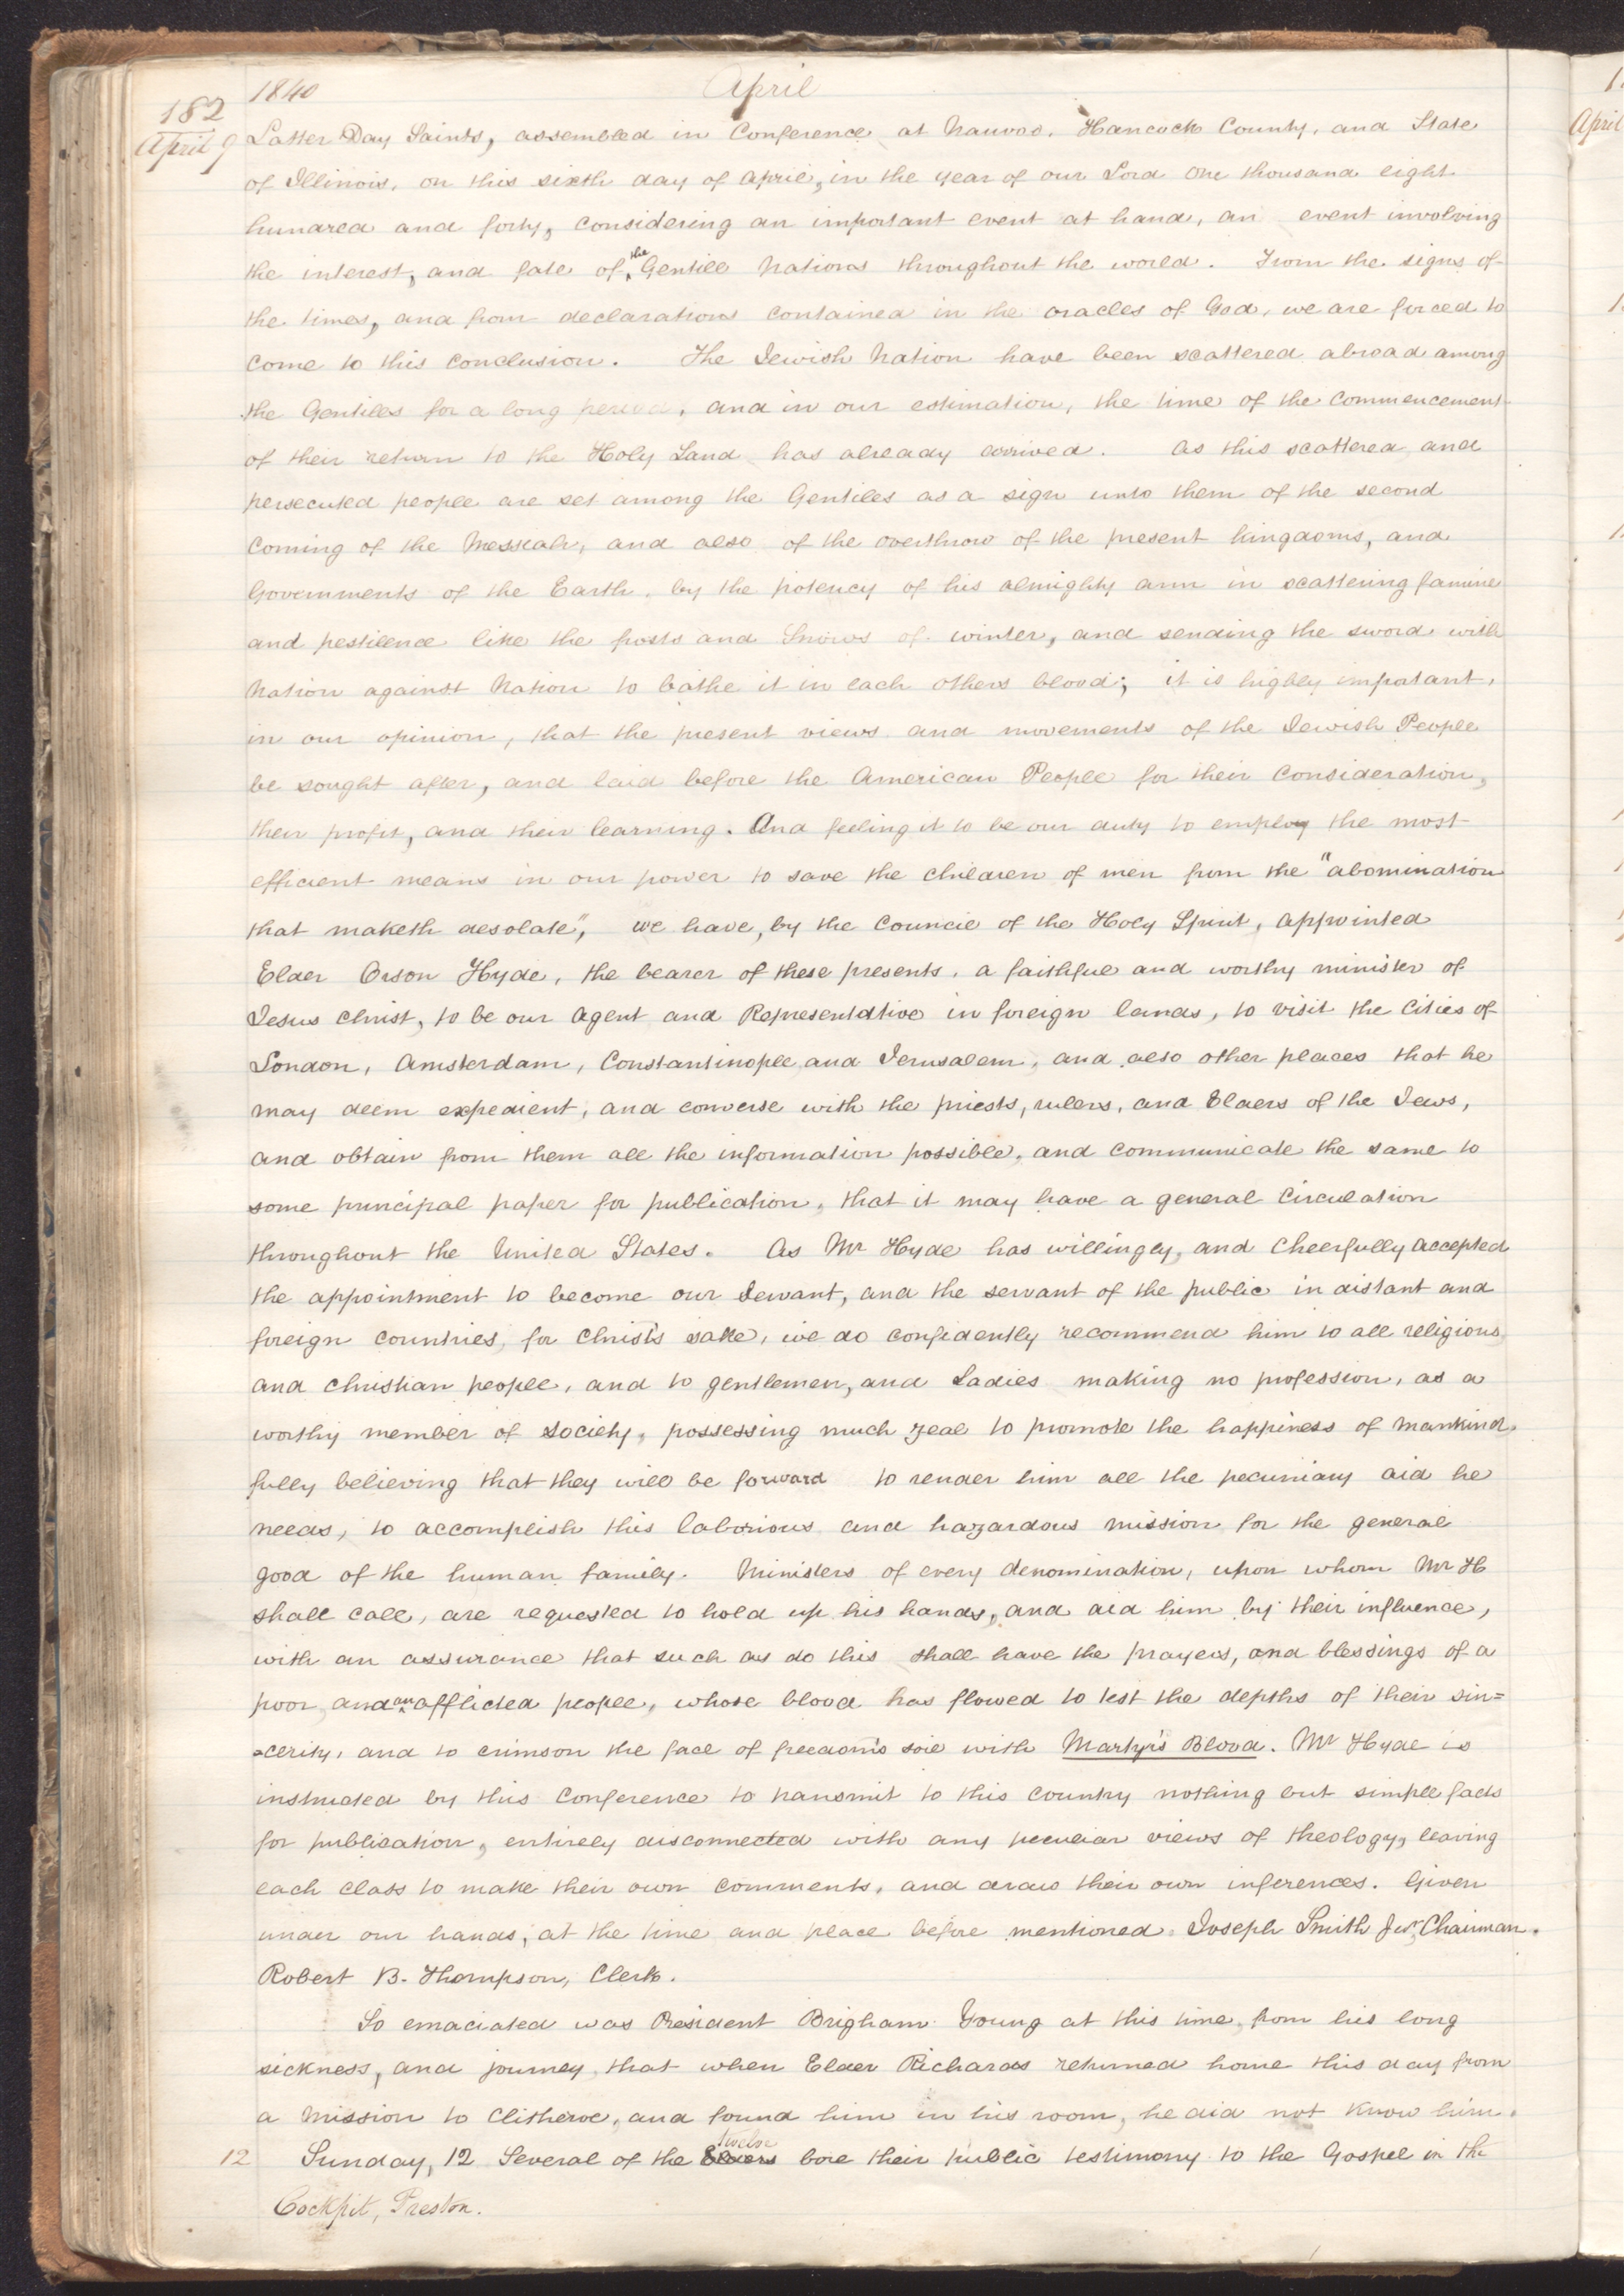 1840 April
182
April 9 Latter Day Saints, assembled in Conference at Nauvoo, Hancock County, and State
of Illinois, on this sixth day of april, in the year of our Lord One thousand eight
hundred and forty, considering an important event at hand, an event involving
the interest, and fate of the Gentile Nations throughout the world. From the signs of
the times, and from declarations contained in the oracles of God, we are forced to
come to this conclusion. The Jewish Nation have been scattered abroad among
the Gentiles for a long period, and in our estimation, the time of the Commencement
of their return to the Holy Land has already arrived. As this scattered and
persecuted people are set among the Gentiles as a sign unto them of the second
coming of the Messiah, and also of the overthrow of the present kingdoms, and
Governments of the Earth, by the potency of his almighty arm in scattering famine
and pestilence like the frosts and Snows of winter, and sending the sword with
Nation against Nation to bathe it in each others blood; it is highly important,
in our opinion, that the present views and movements of the Jewish People
be sought after, and laid before the American People for their consideration,
their profit, and their learning. And feeling it to be our duty to employ the most
efficient means in our power to save the children of men from the "abomination
that maketh desolate", we have, by the Council of the Holy Spirit, appointed
Elder Orson Hyde, the bearer of these presents, a faithful and worthy minister of
Jesus Christ, to be our Agent and Representative in foreign lands, to visit the Cities of
London, Amsterdam, Constantinople, and Jerusalem, and also other places that he
may deem expedient, and converse with the priests, rulers, and Elders of the Jews,
and obtain from them all the information possible, and communicate the same to
some principal paper for publication, that it may have a general Circulation
throughout the United States. As Mr Hyde has willingly, and cheerfully accepted
the appointment to become our Servant, and the servant of the public in distant and
foreign countries, for Christ's sake, we do confidently recommend him to all religious
and christian people, and to gentlemen, and Ladies making no profession, as a
worthy member of Society, possessing much zeal to promote the happiness of mankind,
fully believing that they will be forward to render him all the pecuniary aid he
needs, to accomplish this laborious and hazardous mission for the general
good of the human family. Ministers of every denomination, upon whom Mr H
shall call, are requested to hold up his hands, and aid him by their influence,
with an assurance that such as do this shall have the prayers, and blessings of a
poor, and an afflicted people, whose blood has flowed to test the depths of their sin=
=cerity, and to crimson the face of freedom's soil with Martyr's Blood. Mr Hyde is
instructed by this Conference to transmit to this country nothing but simple facts
for publication, entirely disconnected with any peculiar views of theology, leaving
each class to make their own comments, and draw their own inferences. Given
under our hands, at the time and place before mentioned. Joseph Smith Jun. Chairman.
Robert B. Thompson, Clerk.
So emaciated was President Brigham Young at this time, from his long
sickness, and journey, that when Elder Richards returned home this day from
a Mission to Clitheroe, and found him in his room, he did not know him.
12 Sunday, 12 Several of the Elders twelve bore their public testimony to the Gospel in the
Cockpit, Preston.
April